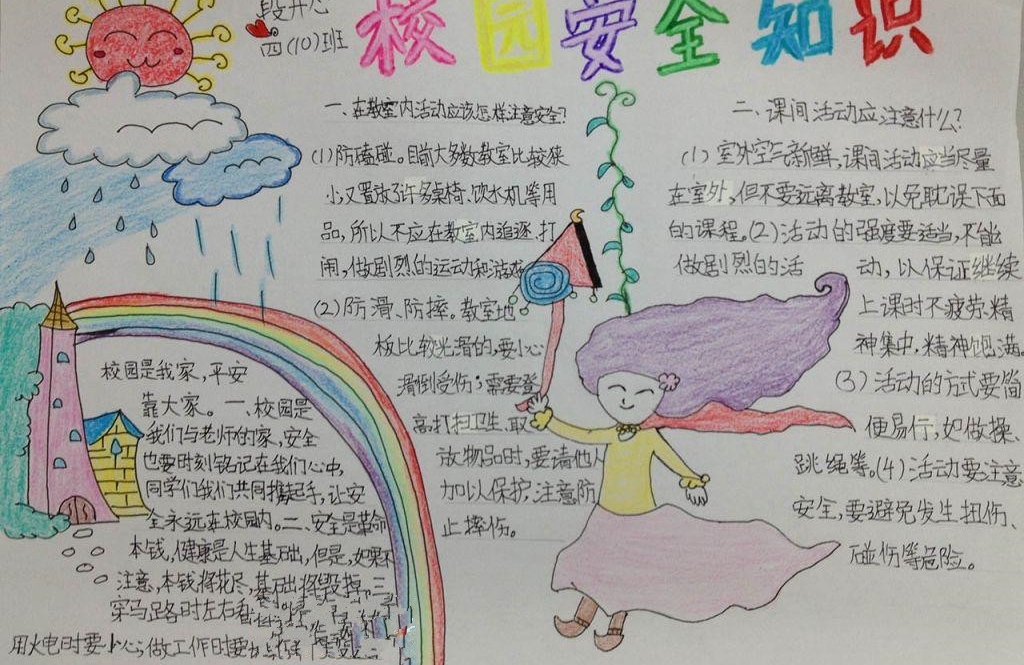 校园安全知识
段开心
四(10)班
一、在教室内活动应该怎样注意安全?
(1)防磕碰。目前大多数教室比较狭
小,又置放了许多桌椅、饮水机等用
品,所以不应在教室内追逐、打
闹,做剧烈的运动和游戏
(2)防滑、防摔。教室地
板比较光滑的,要小心
滑倒受伤;需要登
高打扫卫生、取
放物品时,要请他人
加以保护,注意防
止摔伤。
二、课间活动应注意什么?
(1)室外空气新鲜,课间活动应当尽量
在室外,但不要远离教室,以免耽误下面
的课程。(2)活动的强度要适当,不能
做剧烈的活动,以保证继续
上课时不疲劳、精
神集中,精神饱满
(3)活动的方式要简
便易行,如做操、
跳绳等。(4)活动要注意
安全,要避免发生扭伤、
碰伤等危险。
校园是我家,平安
靠大家。一、校园是
我们与老师的家,安全
也要时刻铭记在我们心中,
同学们我们共同携起手,让安
全永远在校园内。二、安全是革命
本钱,健康是人生基础,但是,如果不
注意,本钱将花尽,基础将毁掉。三
穿马路时左右看
用火电时要小心;做工作时要